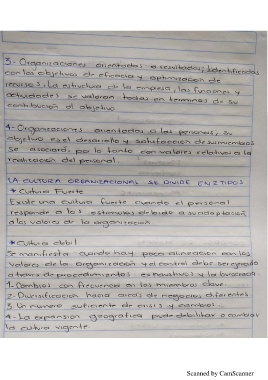 3- Organizaciones orientadas a resultados; identificadas
con los objetivos de eficacia y optimización de
recursos. La estructura de la empresa, las funciones y
actividades se valoran todas en terminos de su
contribución al objetivo
4- Organizaciones orientadas a las personas, su
objetivo es el desarrollo y satisfacción de sus miembros
Se asociará, por lo tanto con valores relativos a la
realización del personal.
LA CULTURA ORGANIZACIONAL SE DIVIDE EN 2 TIPOS
* Cultura Fuerte
Existe una cultura fuerte cuando el personal
responde a los estimulos debido a su adaptación
a los valores de la organización
* Cultura debil
Se manifiesta cuando hay poca alineación con los
valores de la organización y el control debe ser ejercido
a traves de procedimientos exhaustivos y la burocracia.
1- Cambios con frecuencia en los miembros clave
2- Diversificación hacia areas de negocios diferentes
3- Un numero suficiente de crisis y cambios
4- La expansión geografica puede debilitar o cambiar
la cultura vigente.
Scanned by CamScanner